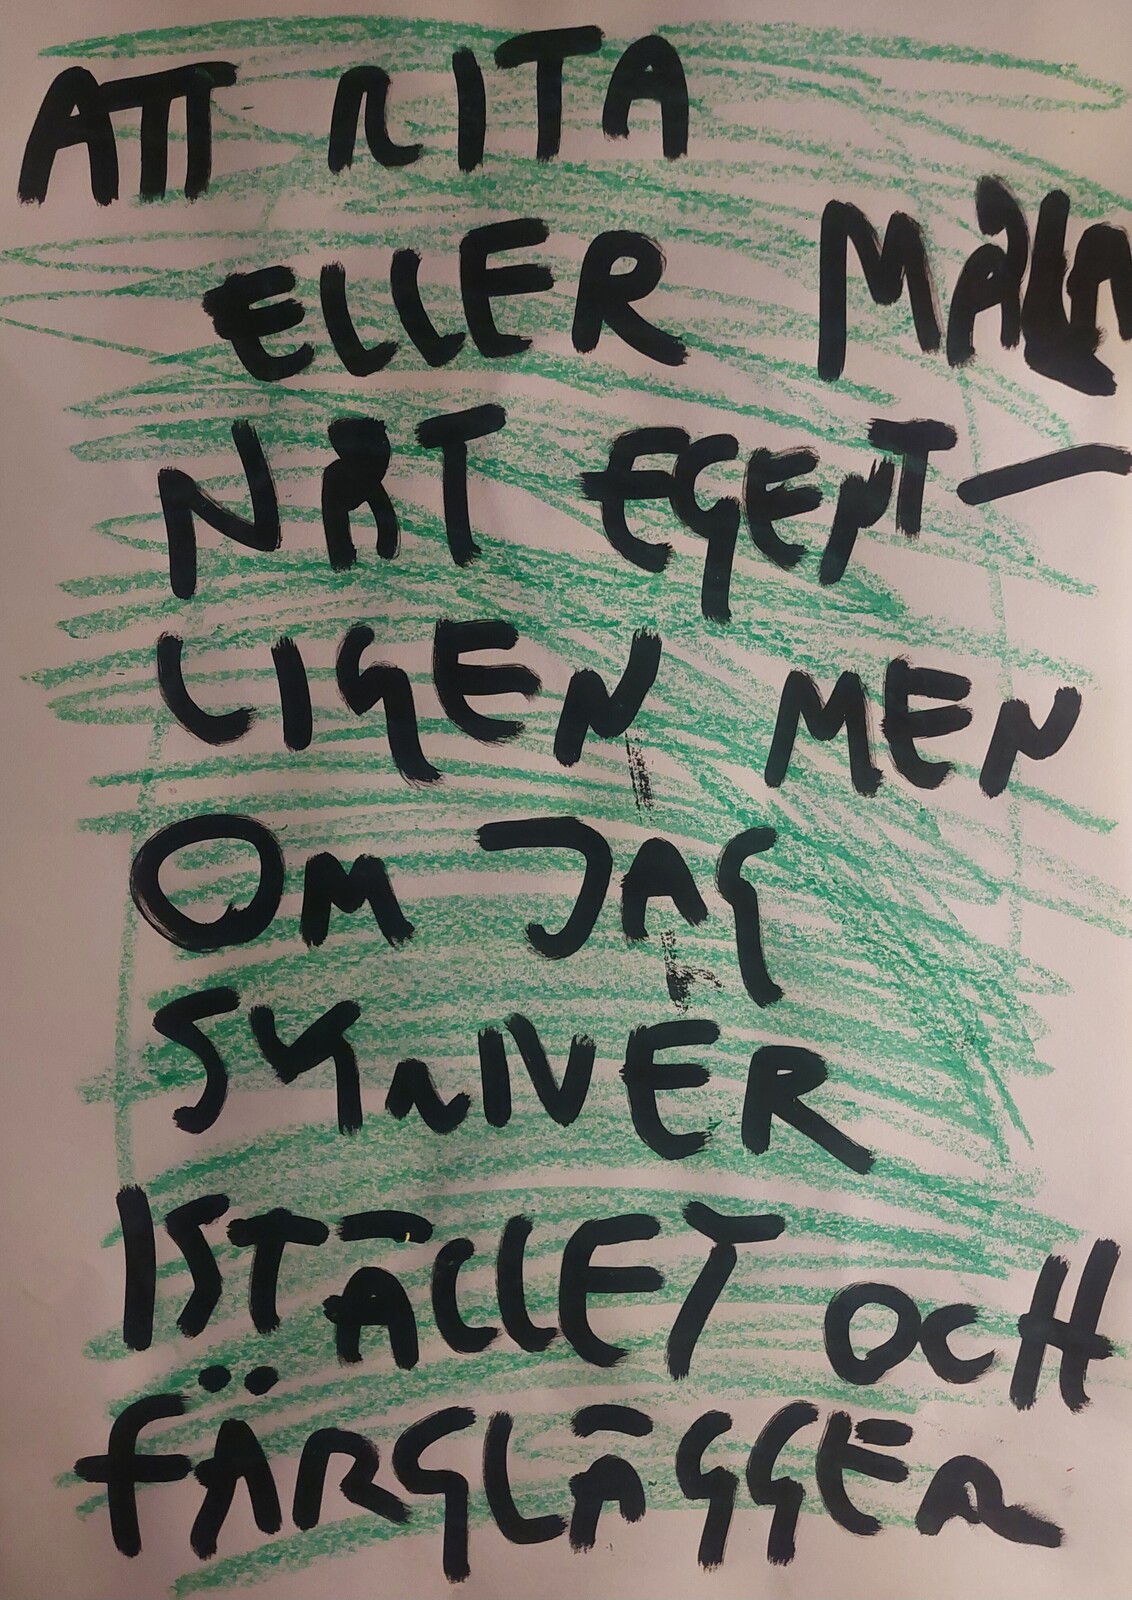 ATT RITA
ELLER MÅLA
NÅT EGENT-
LIGEN MEN
OM JAG
SKRIVER
ISTÄLLET OCH
FÄRGLÄGGER